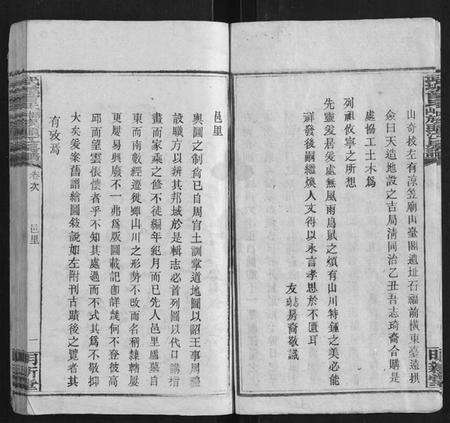 山奇拔左有涼笠廟山臺關遺址石福前橫東臺遠拱
僉曰天造地設之古局清同治乙丑吾志琦裔合購是
處協工土木爲
列祖攸寧之所想
先靈爰居爰處無風雨鳥鼠之煩有山川特鍾之美必能
祥發後嗣繼煥人文得以永言孝思於不匱耳
裔敬識
邑里
輿圖之制肇自周官土訓掌道地圖以詔王事周禮
設職方以辨其邦域於是輯志必首列圖以代口講指
畫而家乘之修不徒編年紀月而已先人邑里廬墓自
東而南數經遷徙雖山川之形勢不改而名稱隸轄屢
更屢易與廢不一弗爲版圖載記詳幾何不登彼高
邱而望雲悵懷者乎不知其處過而不式其爲不敬抑
大矣爰案舊譜繪圖敍說如左附刊古蹟後之覽者其
有攷焉
卷次
邑里
一
日新堂